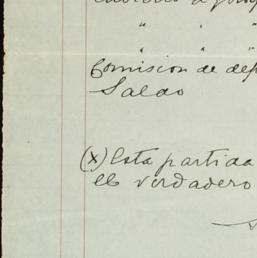 " " "
Comision de
Saldo
(x) Esta partida
es verdadero